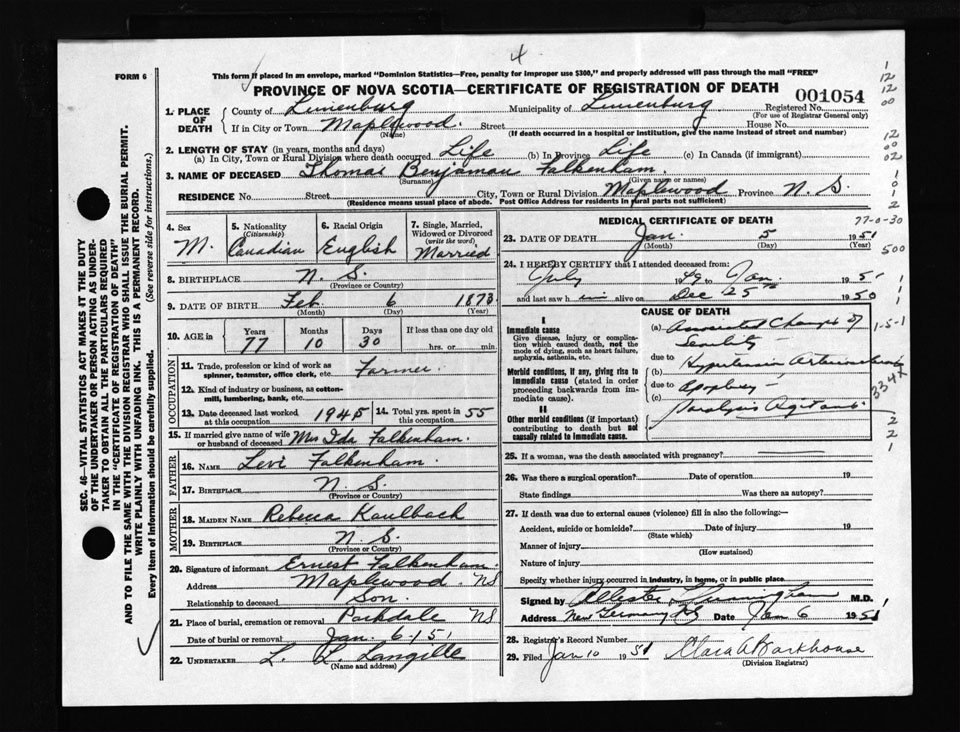 4
FORM 6
This form if placed in an envelope, marked "Dominion Statistics—Free, penalty for improper use $300," and properly addressed will pass through the mail "FREE"
PROVINCE OF NOVA SCOTIA—CERTIFICATE OF REGISTRATION OF DEATH
001054
1. PLACE OF DEATH
County of Lunenburg Municipality of Lunenburg Registered No.
(For use of Registrar General only)
If in City or Town Maplewood. Street House No.
(Name) (If death occurred in a hospital or institution, give the name instead of street and number)
2. LENGTH OF STAY (in years, months and days)
(a) In City, Town or Rural Division where death occurred Life (b) In Province Life (c) In Canada (if immigrant)
3. NAME OF DECEASED Thomas Benjaman Falkenham.
(Surname) (Given name or names)
RESIDENCE No. Street City, Town or Rural Division Maplewood Province N. S.
(Residence means usual place of abode. Post Office Address for residents in rural parts not sufficient)
4. Sex M.
5. Nationality (Citizenship) Canadian
6. Racial Origin English
7. Single, Married, Widowed or Divorced (write the word) Married
8. BIRTHPLACE N. S.
(Province or Country)
9. DATE OF BIRTH Feb 6 1873
(Month) (Day) (Year)
10. AGE in Years Months Days If less than one day old
77 10 30 hrs. or min.
OCCUPATION
11. Trade, profession or kind of work as spinner, teamster, office clerk, etc. Farmer.
12. Kind of industry or business, as cotton-mill, lumbering, bank, etc.
13. Date deceased last worked at this occupation 1945 14. Total yrs. spent in this occupation 55
15. If married give name of wife or husband of deceased Mrs Ida Falkenham.
FATHER
16. NAME Levi Falkenham.
17. BIRTHPLACE N. S.
(Province or Country)
MOTHER
18. MAIDEN NAME Rebecca Kaulback
19. BIRTHPLACE N. S.
(Province or Country)
20. Signature of informant Ernest Falkenham.
Address Maplewood - NS
Relationship to deceased Son.
21. Place of burial, cremation or removal Parkdale NS
Date of burial or removal Jan. 6 - 151
22. UNDERTAKER L. L. Langille
(Name and address)
MEDICAL CERTIFICATE OF DEATH
23. DATE OF DEATH Jan. 5 1951
(Month) (Day) (Year)
24. I HEREBY CERTIFY that I attended deceased from:
July 1949 to Jan. 1951
and last saw him alive on Dec 25th 1950
CAUSE OF DEATH
I
Immediate cause
Give disease, injury or complication which caused death, not the mode of dying, such as heart failure, asphyxia, asthenia, etc.
Morbid conditions, if any, giving rise to immediate cause (stated in order proceeding backwards from immediate cause).
II
Other morbid conditions (if important) contributing to death but not causally related to immediate cause.
(a) Associated Changes of
Senility
due to
(b) Hypertension
due to
(c) Apoplexy -
Paralysis Agitans.
25. If a woman, was the death associated with pregnancy?
26. Was there a surgical operation? Date of operation 19
State findings Was there an autopsy?
27. If death was due to external causes (violence) fill in also the following:—
Accident, suicide or homicide? Date of injury 19
(State which)
Manner of injury
(How sustained)
Nature of injury
Specify whether injury occurred in industry, in home, or in public place
Signed by M.D.
Address New Germany NS Date Jan 6 1951
28. Registrar's Record Number
29. Filed Jan 10 1951 Clara A Barkhouse
(Division Registrar)
SEC. 46—VITAL STATISTICS ACT MAKES IT THE DUTY
OF THE UNDERTAKER OR PERSON ACTING AS UNDER-
TAKER TO OBTAIN ALL THE PARTICULARS REQUIRED
IN THE "CERTIFICATE OF REGISTRATION OF DEATH"
AND TO FILE THE SAME WITH THE DIVISION REGISTRAR WHO SHALL ISSUE THE BURIAL PERMIT.
WRITE PLAINLY WITH UNFADING INK. THIS IS A PERMANENT RECORD.
Every item of information should be carefully supplied. (See reverse side for instructions.)
1
12
12
00
12
60
02
1
0
1
2
77-0-30
500
1
1
1
1-5-1
334X
2
2
1